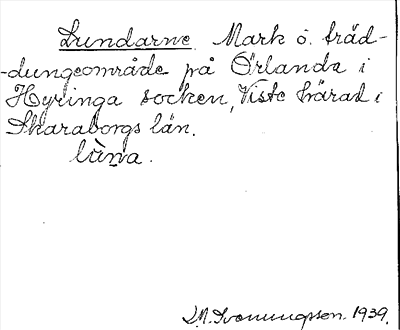 Lundarne. Mark o. träd-
-dungeområde på Örlanda i
Hyringa socken, Viste härad i
Skaraborgs län.
lùna.
1939.